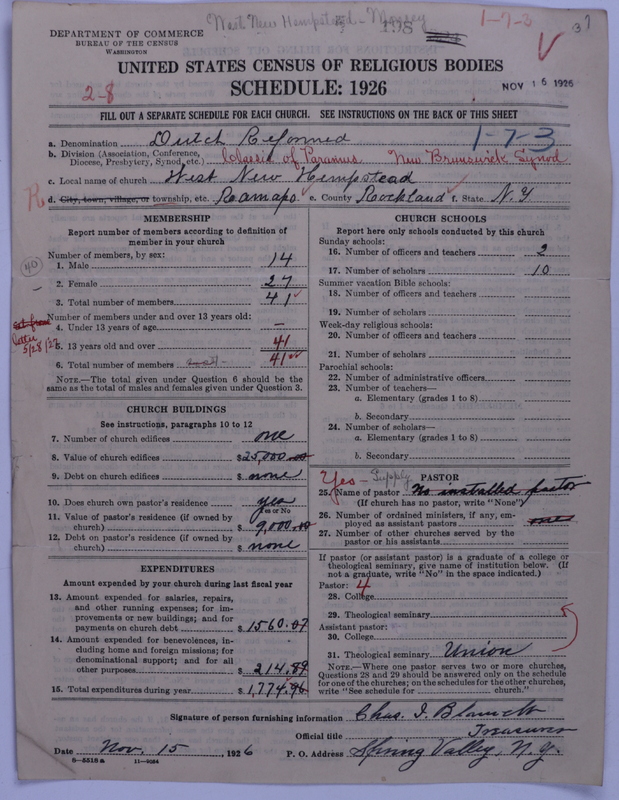 West New Hempstead - Monsey
198
1-7-3
37
DEPARTMENT OF COMMERCE
BUREAU OF THE CENSUS
WASHINGTON
UNITED STATES CENSUS OF RELIGIOUS BODIES
SCHEDULE: 1926
NOV 16 1926
2-8
FILL OUT A SEPARATE SCHEDULE FOR EACH CHURCH. SEE INSTRUCTIONS ON THE BACK OF THIS SHEET
a. Denomination Dutch Reformed 1-7-3
b. Division (Association, Conference, Diocese, Presbytery, Synod, etc.) Classis of Paramus. New Brunswick Synod
c. Local name of church West New Hempstead
R d. City, town, village, or township, etc. Ramapo e. County Rockland f. State N.Y
MEMBERSHIP
Report number of members according to definition of
member in your church
Number of members, by sex:
1. Male 14
40
2. Female 27
3. Total number of members 41
Number of members under and over 13 years old:
4. Under 13 years of age —
letter
5/28/27
5. 13 years old and over 41
6. Total number of members 41
NOTE.—The total given under Question 6 should be the
same as the total of males and females given under Question 3.
CHURCH BUILDINGS
See instructions, paragraphs 10 to 12
7. Number of church edifices one
8. Value of church edifices $25,000.00
9. Debt on church edifices $ none
10. Does church own pastor's residence yes
Yes or No
11. Value of pastor's residence (if owned by
church) $ 9,000.00
12. Debt on pastor's residence (if owned by
church) $ none
EXPENDITURES
Amount expended by your church during last fiscal year
13. Amount expended for salaries, repairs,
and other running expenses; for im-
provements or new buildings; and for
payments on church debt $ 1560.07
14. Amount expended for benevolences, in-
cluding home and foreign missions; for
denominational support; and for all
other purposes $ 214.89
15. Total expenditures during year $ 1,774.96
CHURCH SCHOOLS
Report here only schools conducted by this church
Sunday schools:
16. Number of officers and teachers 2
17. Number of scholars 10
Summer vacation Bible schools:
18. Number of officers and teachers
19. Number of scholars
Week-day religious schools:
20. Number of officers and teachers
21. Number of scholars
Parochial schools:
22. Number of administrative officers
23. Number of teachers—
a. Elementary (grades 1 to 8)
b. Secondary
24. Number of scholars—
a. Elementary (grades 1 to 8)
b. Secondary
Yes - Supply PASTOR
25. Name of pastor No installed pastor
(If church has no pastor, write "None")
26. Number of ordained ministers, if any, em-
ployed as assistant pastors one
27. Number of other churches served by the
pastor or his assistants
If pastor (or assistant pastor) is a graduate of a college or
theological seminary, give name of institution below. (If
not a graduate, write "No" in the space indicated.)
Pastor: 4
28. College
29. Theological seminary
Assistant pastor:
30. College
31. Theological seminary Union
NOTE.—Where one pastor serves two or more churches,
Questions 28 and 29 should be answered only on the schedule
for one of the churches; on the schedules for the other churches,
write "See schedule for church."
Signature of person furnishing information Chas. I. Blauvelt
Official title Treasurer
Date Nov. 15, 1926 P. O. Address Spring Valley, N.Y.
8-5518a 11-9064